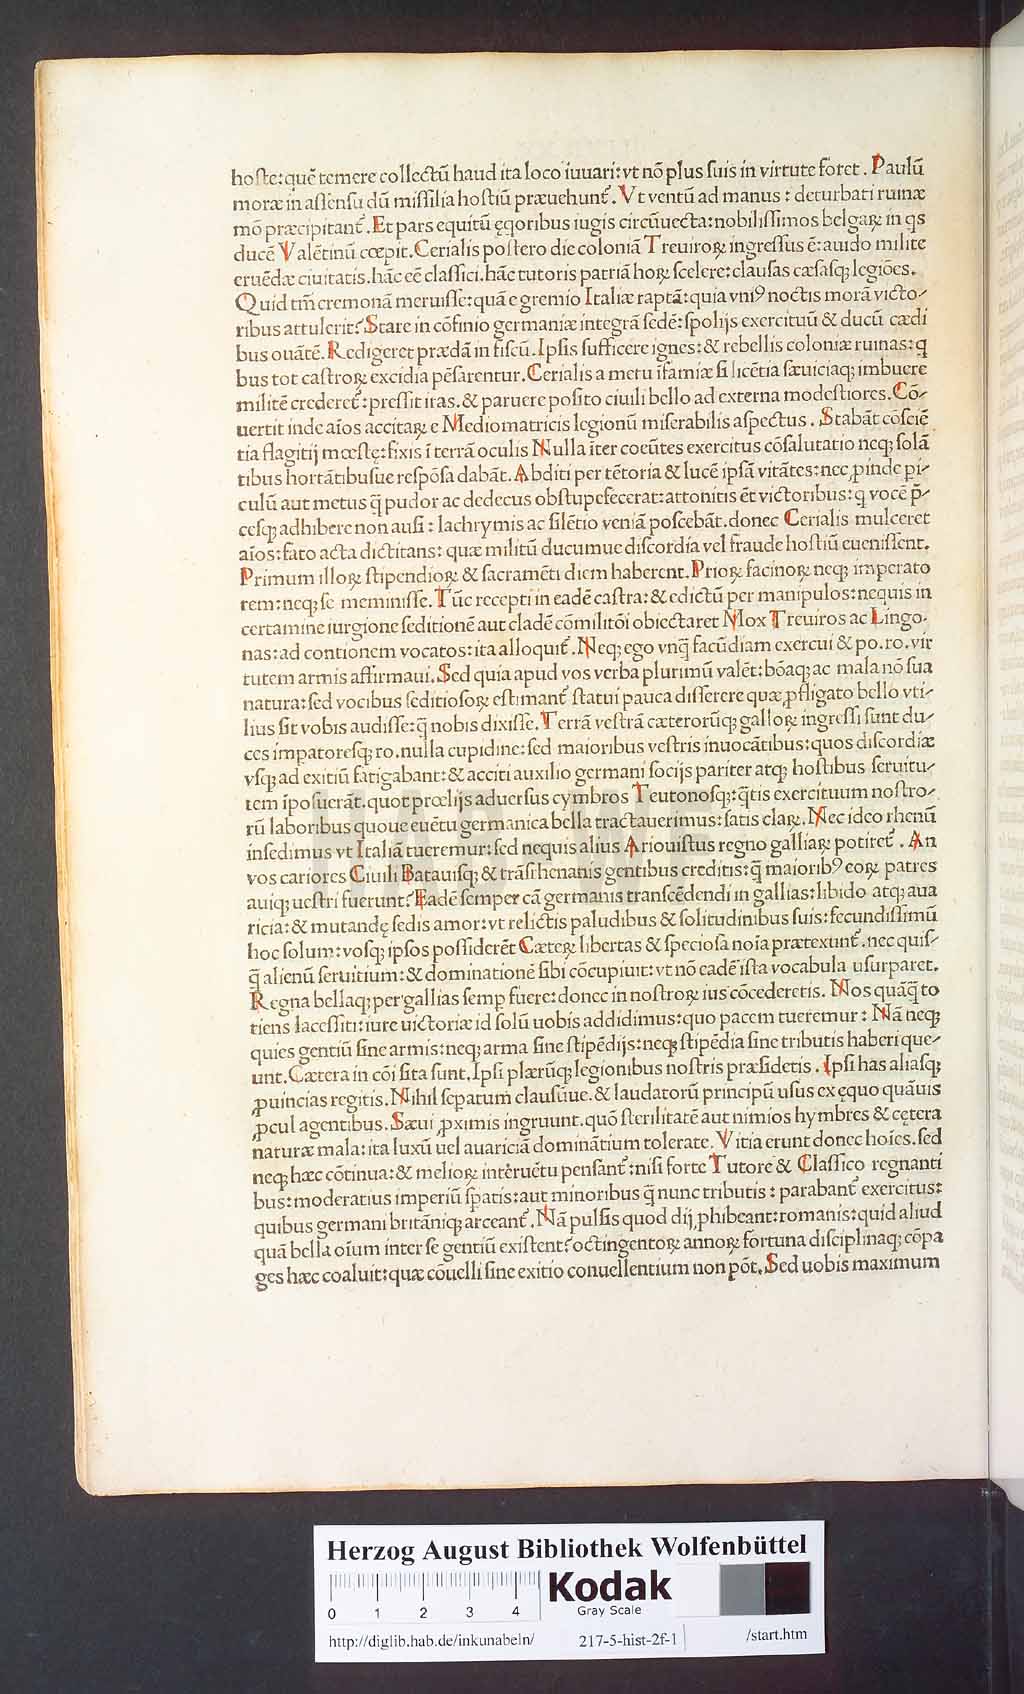 hoste:quē temere collectū haud ita loco iuuari:vt nō plus suis in virtute foret. Paulū
moræ in assensu dū missilia hostiū præuehunt᷑. Vt ventū ad manus: deturbati ruinæ
mō præcipitant᷑. Et pars equitū ęqoribus iugis circūuecta: nobilissimos belgaꝝ in qs
ducē Valētinū cœpit. Cerialis postero die coloniā Treuiroꝝ ingressus ē: auido milite
eruēdæ ciuitatis. hāc eē classici. hāc tutoris patriā hoꝝ scelere: clausas cæsasqꝫ legiōes.
Quid tm̄ cremonā meruisse: quā e gremio Italiæ raptā: quia vniꝰ noctis morā victo/
ribus attulerit? Stare in cōfinio germaniæ integrā sedē: spolijs exercituū & ducū cædi
bus ouātē. Redigeret prædā in fiscū. Ipsis sufficere ignes: & rebellis coloniæ ruinas: q
bus tot castroꝝ excidia pēsarentur. Cerialis a metu īfamiæ si licētia sæuiciaqꝫ imbuere
militē crederet᷑: pressit iras. & paruere posito ciuili bello ad externa modestiores. Cō/
uertit inde aīos accitaꝝ e Mediomatricis legionū miserabilis aspectus. Stabāt cōsciē
tia flagitij mœstę: fixis ī terrā oculis Nulla īter coeūtes exercitus cōsalutatio neqꝫ solā
tibus hortātibusue respōsa dabāt. Abditi per tētoria & lucē ipsā vitātes: nec ꝓinde pi/
culū aut metus q̄ pudor ac dedecus obstupefecerat: attonitis ēt victoribus: q vocē p̄/
cesqꝫ adhibere non ausi: lachrymis ac silētio veniā poscebāt. donec Cerialis mulceret
aīos: fato acta dictitans: quæ militū ducumue discordia vel fraude hostiū euenissent.
Primum illoꝝ stipendioꝝ & sacramēti diem haberent. Prioꝝ facinoꝝ neqꝫ imperato
rem: neqꝫ se meminisse. Tūc recepti in eadē castra: & edictū per manipulos: nequis in
certamine iurgione seditionē aut cladē cōmilitōi obiectaret Mox Treuiros ac Lingo.
nas: ad contionem vocatos: ita alloquit᷑. Neqꝫ ego vnq̄ facūdiam exercui & po. ro. vir
tutem armis affirmaui. Sed quia apud vos verba plurimū valēt: bōaqꝫ ac mala nō sua
natura: sed vocibus seditiosoꝝ estimant᷑ statui pauca disserere quæ ꝓfligato bello vti/
lius sit vobis audisse: q̄ nobis dixisse. Terrā vestrā cæterorūqꝫ galloꝝ ingressi sunt du/
ces impatoresqꝫ ro. nulla cupidine: sed maioribus vestris inuocātibus: quos discordiæ
vsqꝫ ad exitiū fatigabant: & acciti auxilio germani socijs pariter atqꝫ hostibus seruitu/
tem īposuerāt. quot prœlijs aduersus cymbros Teutonosqꝫ: q̄tis exercituum nostro/
rū laboribus quoue euētu germanica bella tractauerimus: satis claꝝ. Nec ideo rhenū
insedimus vt Italiā tueremur: sed nequis alius Ariouistus regno galliaꝝ potiret᷑. An
vos cariores Ciuili Batauisqꝫ & trāsrhenanis gentibus creditis: q̄ maioribꝰ eoꝝ patres
auiqꝫ uestri fuerunt? Eadē semper cā germanis transcēdendi in gallias: libido atqꝫ aua
ricia: & mutandę sedis amor: vt relictis paludibus & solitudinibus suis: fecundissimū
hoc solum: vosqꝫ ipsos possiderēt Cæteꝝ libertas & speciosa noīa prætexunt᷑. nec quis/
q̄ alienū seruitium: & dominationē sibi cōcupiuit: vt nō eadē ista vocabula usurparet.
Regna bellaqꝫ per gallias semp fuere: donec in nostroꝝ ius cōcederetis. Nos quāq̄ to
tiens lacessiti: iure uictoriæ id solū uobis addidimus: quo pacem tueremur: Nā neqꝫ
quies gentiū sine armis: neqꝫ arma sine stipēdijs: neqꝫ stipēdia sine tributis haberi que/
unt. Cætera in cōi sita sunt. Ipsi plærūqꝫ legionibus nostris præsidetis. Ipsi has aliasqꝫ
ꝓuincias regitis. Nihil sepatum clausūue. & laudatorū principū usus ex ęquo quāuis
ꝓcul agentibus. Sæui ꝓximis ingruunt. quō sterilitatē aut nimios hymbres & cętera
naturæ mala: ita luxū uel auariciā dominātium tolerate. Vitia erunt donec hoīes. sed
neqꝫ hæc cōtinua: & melioꝝ interuētu pensant᷑: nisi forte Tutore & Classico regnanti
bus: moderatius imperiū spatis: aut minoribus q̄ nunc tributis: parabant᷑ exercitus:
quibus germani britāniqꝫ arceant᷑. Nā pulsis quod dij ꝓhibeant: romanis: quid aliud
quā bella oīum inter se gentiū existent? octingentoꝝ annoꝝ fortuna disciplinaqꝫ cōpa
ges hæc coaluit: quæ cōuelli sine exitio conuellentium non pōt. Sed uobis maximum
HAB WF
Herzog August Bibliothek Wolfenbüttel
0 1 2 3 4
Kodak
Gray Scale
http://diglib.hab.de/inkunabeln/ 217-5-hist-2f-1 /start.htm